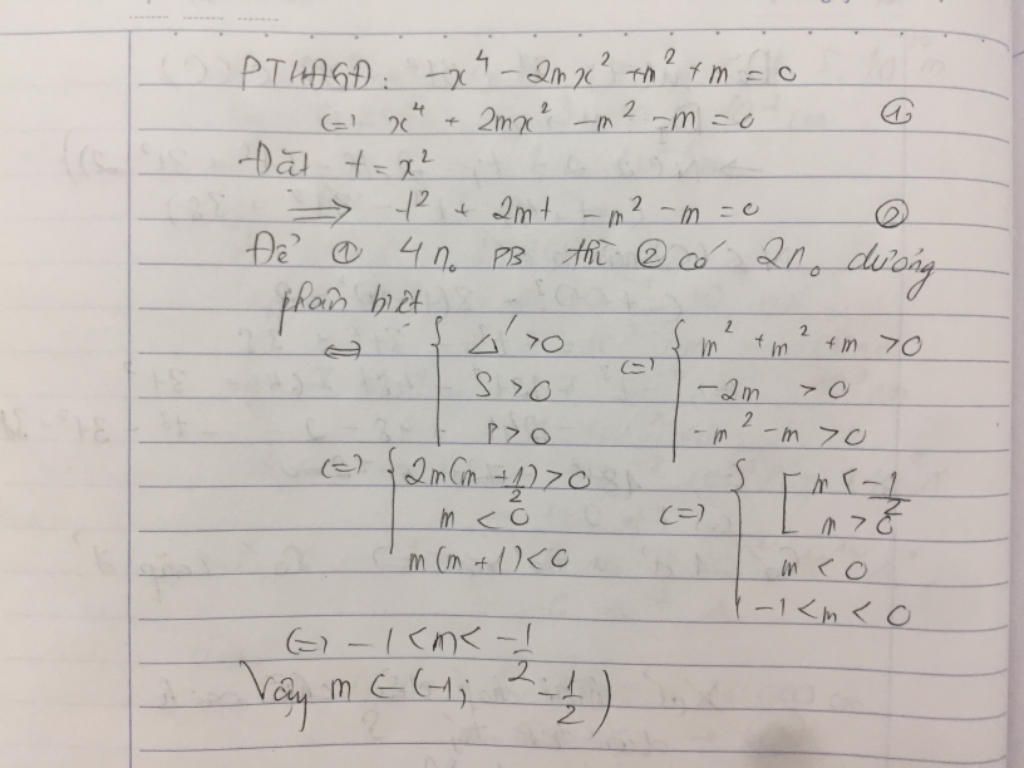 PTHĐGĐ: -x⁴ - 2mx² + m² + m = 0
(=) x⁴ + 2mx² - m² - m = 0 ①
Đặt t = x²
⟹ t² + 2mt - m² - m = 0 ②
Để ① 4 n₀ PB thì ② có 2n₀ dương
phân biệt
⇔ { Δ' > 0 (=) { m² + m² + m > 0
S > 0 -2m > 0
P > 0 -m² - m > 0
(=) { 2m(m + 1/2) > 0 (=) { [ m < -1/2
m < 0 m > 0
m(m + 1) < 0 m < 0
-1 < m < 0
(=) -1 < m < -1/2
Vậy m ∈ (-1; -1/2)